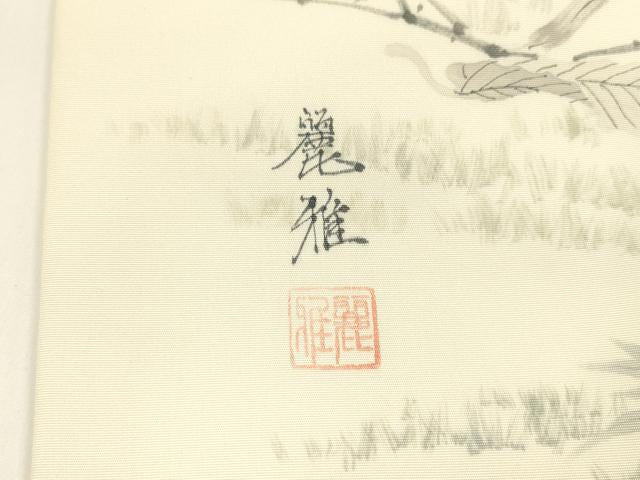 麗雅
麗雅